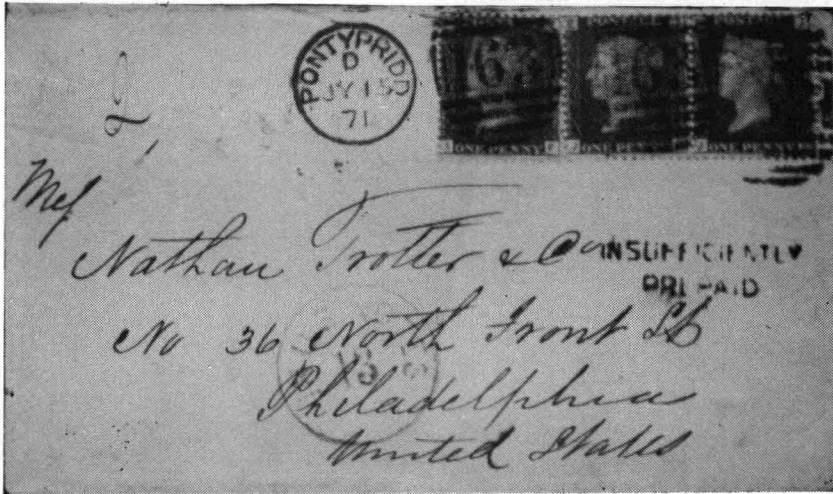 PONTYPRIDD
D
JY 15
71
ONE PENNY
ONE PENNY
ONE PENNY
Nathan Trotter & Co
INSUFFICIENTLY
PREPAID
No 36 North Front St
Philadelphia
United States